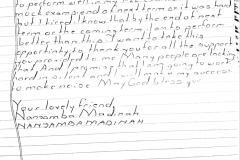 to perform well in my
mock exams end of next term or it was bad
but I tried. I know that by the end of next
term or the coming term I can to perform
better than this. I want to take this
opportunity to thank you for all the support
you provided to me. Many people are lacking
that. And I promise that I am going to work
hard in silent and I will make my success
to make noise. May God bless you
Your lovely friend
Nansamba Madinah
NANSAMBA MADINAH